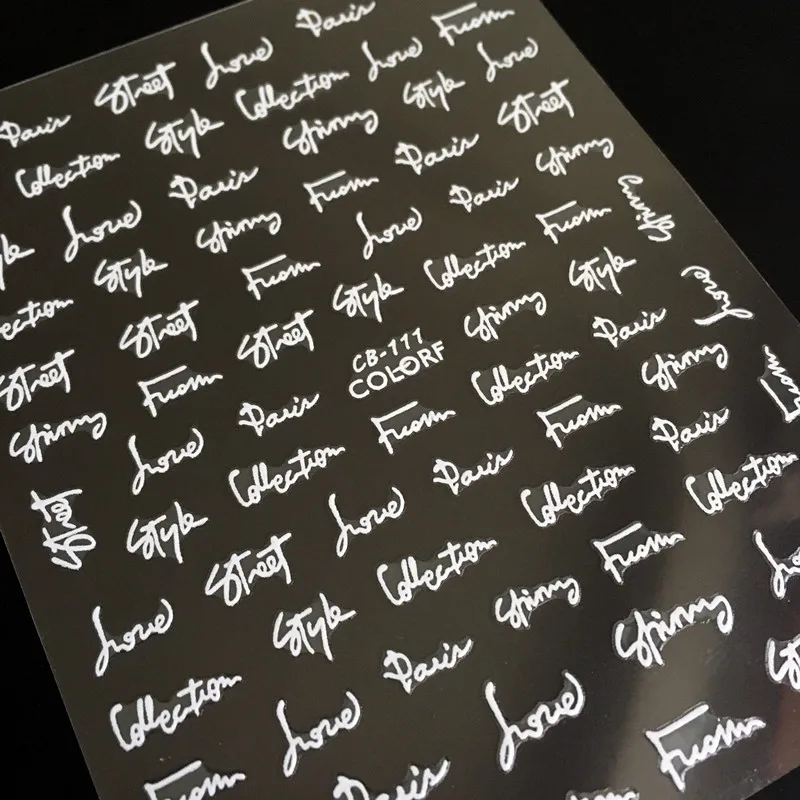 Paris Street Love Paris
Collection Style Collection Love From
Love Paris Spinny Style Love
Style Spinny From Paris Street
Street From Love Paris Spinny
Street Street Style Collection From Spinny
Spinny From
CB-111
COLORF
Spinny Style
Love Paris Collection Paris Love
Street Style Collection From Spinny
Street Love Paris From From
Love Style Collection Collection Paris
Spinny From Collection
Collection Paris Spinny
From Love Love
Paris From